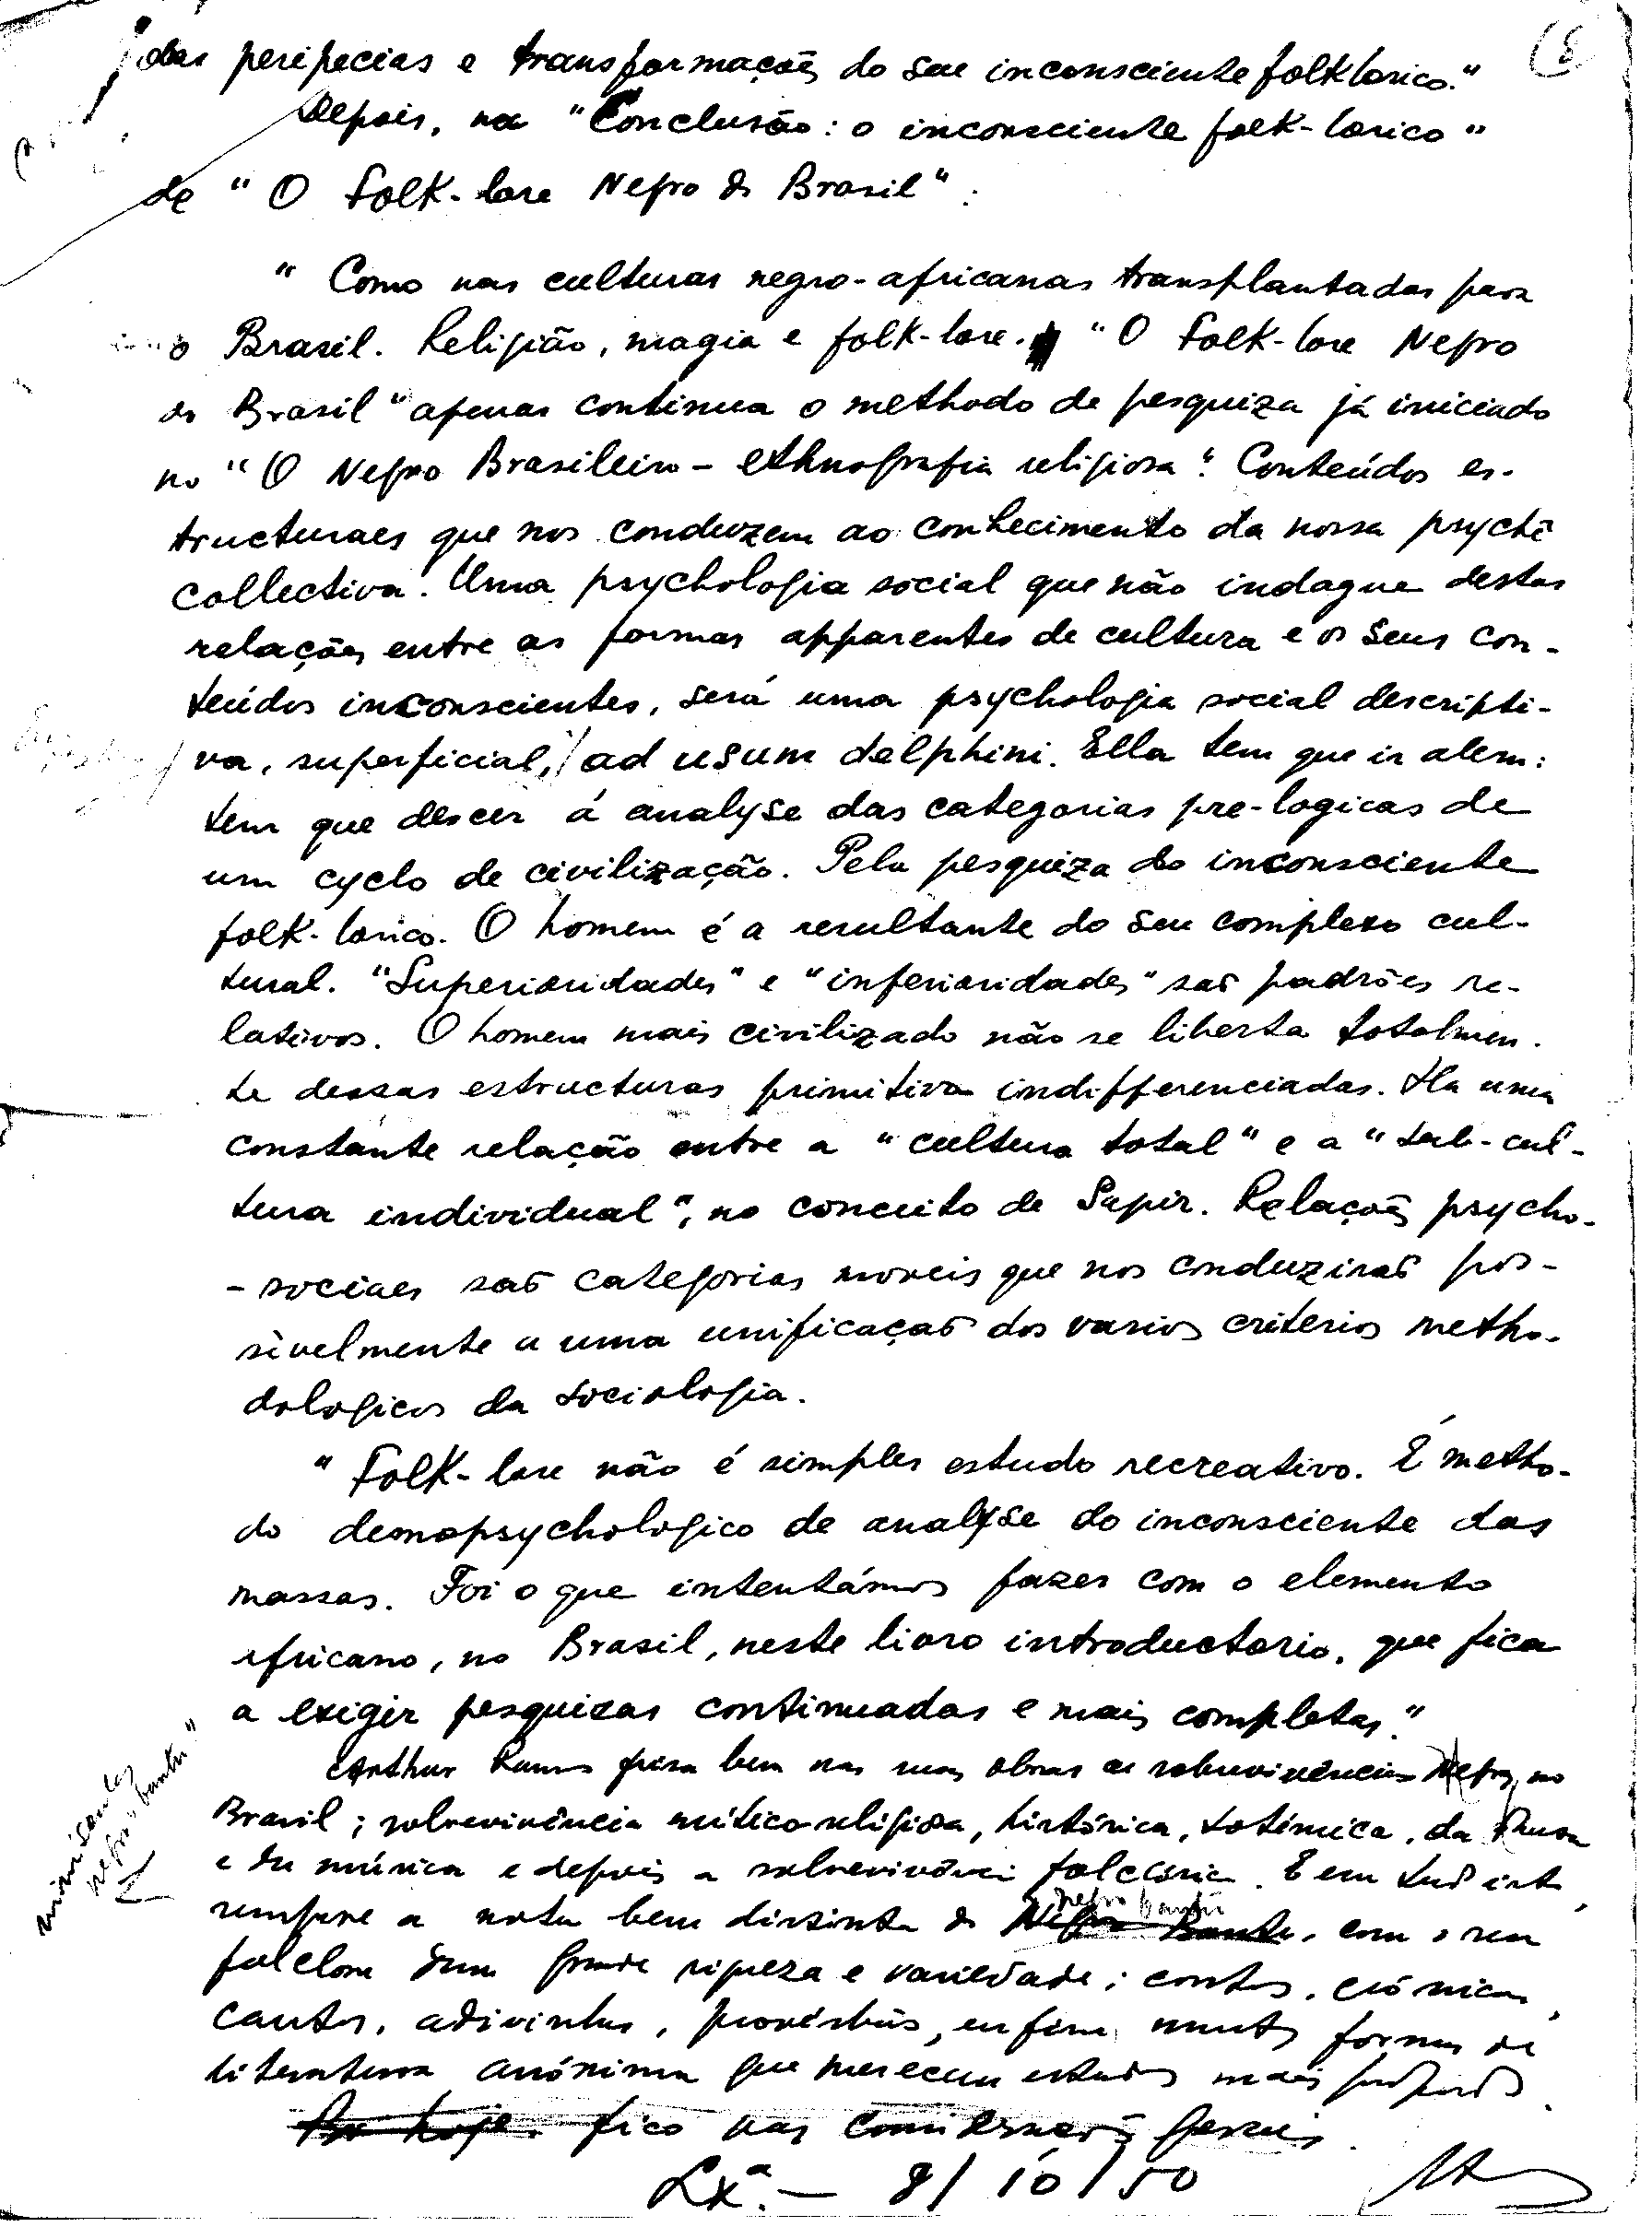 das peripecias e transformações do seu inconsciente folklorico."
Depois, na "Conclusão: o inconsciente folk-lorico"
de "O Folk-lore Negro do Brasil":
" Como nas culturas negro-africanas transplantadas para
o Brasil. Religião, magia e folk-lore. "O Folk-lore Negro
do Brasil" apenas continua o methodo de pesquiza já iniciado
no "O Negro Brasileiro - ethnografia religiosa". Conteúdos es-
tructuraes que nos conduzem ao conhecimento da nossa psychê
collectiva. Uma psychologia social que não indague destas
relações entre as formas apparentes de cultura e os seus con-
teúdos inconscientes, será uma psychologia social descripti-
va, superficial, ad usum delphini. Ella tem que ir alem:
tem que descer á analyse das categorias pre-logicas de
um cyclo de civilização. Pela pesquiza do inconsciente
folk-lorico. O homem é a resultante do seu complexo cul-
tural. "Superioridades" e "inferioridades" são padrões re-
lativos. O homem mais civilizado não se liberta totalmen-
te dessas estructuras primitivas indifferenciadas. Ha uma
constante relação entre a "cultura total" e a "sub-cul-
tura individual", no conceito de Sapir. Relações psycho-
-sociaes são categorias moveis que nos conduzirão pos-
sivelmente a uma unificação dos varios criterios metho-
dologicos da sociologia.
" Folk-lore não é simples estudo recreativo. É metho-
do demopsychologico de analyse do inconsciente das
massas. Foi o que intentámos fazer com o elemento
africano, no Brasil, neste livro introductorio, que fica
a exigir pesquizas continuadas e mais completas."
Arthur Ramos frisa bem nas suas obras as sobrevivências Negras no
Brasil; sobrevivência mítico-religiosa, histórica, totémica, da dansa
e da música e depois a sobrevivência folclórica. E em tudo isto
sempre a nota bem distinta do negro bantu, com o seu
folclore duma grande riqueza e variedade: contos, crónicas,
cantos, adivinhas, provérbios, enfim muitas formas de
literatura anónima que merecem estudos mais profundos.
Por hoje fico nas considerações gerais.
Lxª. - 8/10/50